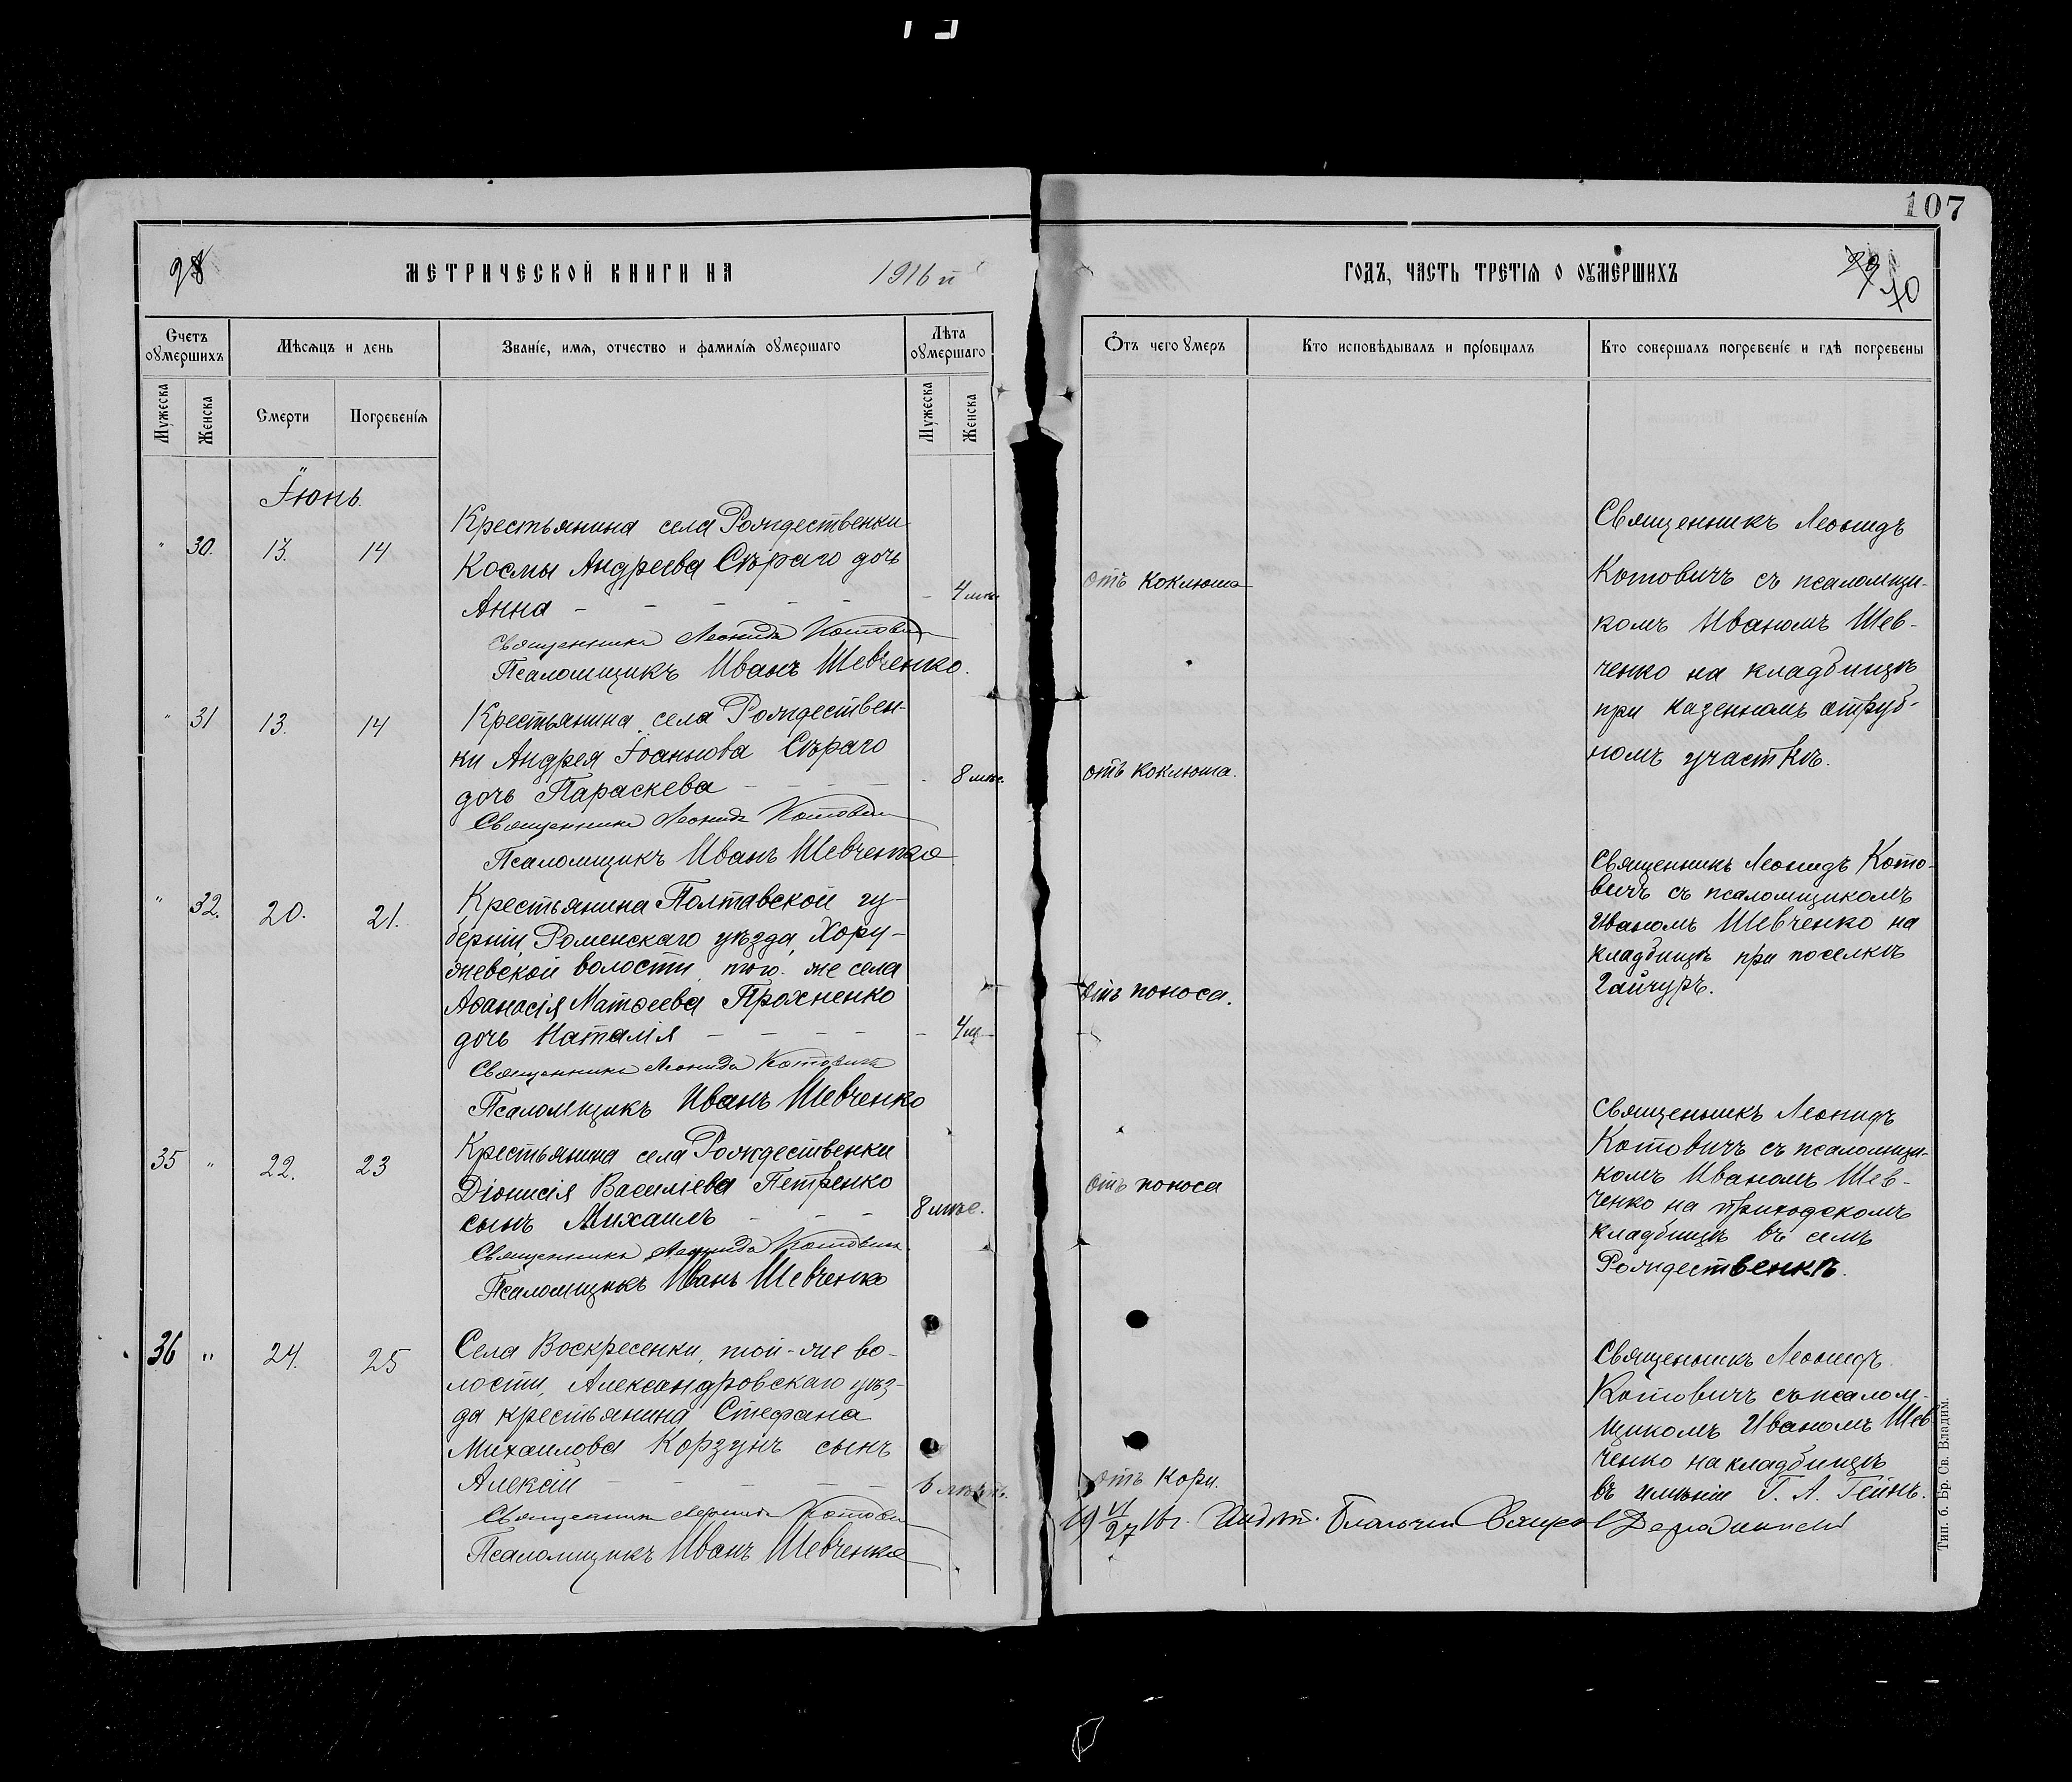 107
МЕТРИЧЕСКОЙ КНИГИ НА 1916 й
Счетъ оумершихъ
Мѣсяцъ и день
Званіе, имя, отчество и фамилія оумершаго
Лѣта оумершаго
Мужеска
Женска
Смерти
Погребенія
Мужеска
Женска
Іюнь
" 30. 13. 14
Крестьянина села Рождественки
Космы Андреева Сѣраго дочь
Анна - - - - - - 4 мѣс.
Священникъ Леонидъ Котовичъ
Псаломщикъ Иванъ Шевченко.
" 31 13. 14
Крестьянина села Рождествен-
ки Андрея Іоаннова Сѣраго
дочь Параскева - - - - 8 мѣс.
Священникъ Леонидъ Котовичъ
Псаломщикъ Иванъ Шевченко
" 32. 20. 21.
Крестьянина Полтавской гу-
берніи, Роменскаго уѣзда, Хору-
жевской волости, того-же села
Аѳанасія Матѳеева Прохненко
дочь Наталія - - - - - 4 м.
Священникъ Леонидъ Котовичъ
Псаломщикъ Иванъ Шевченко
35 " 22. 23
Крестьянина села Рождественки
Діонисія Василіева Петренко
сынъ Михаилъ - - - 8 мѣс.
Священникъ Леонидъ Котовичъ
Псаломщикъ Иванъ Шевченко
36 " 24. 25
Села Воскресенки, той-же во-
лости, Александровскаго уѣз-
да крестьянина Стефана
Михаилова Корзунъ сынъ
Алексій - - - - - 6 лѣтъ.
Священникъ Леонидъ Котовичъ
Псаломщикъ Иванъ Шевченко
ГОДЪ, ЧАСТЬ ТРЕТІЯ О ОУМЕРШИХЪ
70
Отъ чего умеръ
Кто исповѣдывалъ и пріобщалъ
Кто совершалъ погребеніе и гдѣ погребены
отъ коклюша
отъ коклюша.
отъ поноса.
отъ поноса
отъ кори.
Священникъ Леонидъ
Котовичъ съ псаломщи-
комъ Иваномъ Шев-
ченко на кладбищѣ
при казенномъ отруб-
номъ участкѣ.
Священникъ Леонидъ Кото-
вичъ съ псаломщикомъ
Иваномъ Шевченко на
кладбищѣ при поселкѣ
Гайчуръ.
Священникъ Леонидъ
Котовичъ съ псаломщи-
комъ Иваномъ Шев-
ченко на приходскомъ
кладбищѣ въ селѣ
Рождественкѣ.
Священникъ Леонидъ
Котовичъ съ псалом-
щикомъ Иваномъ Шев
ченко на кладбищѣ
въ имѣніи Г. А. Гейнъ.
19 VI/27 16 г.
Тип. б. Бр. Св. Владим.